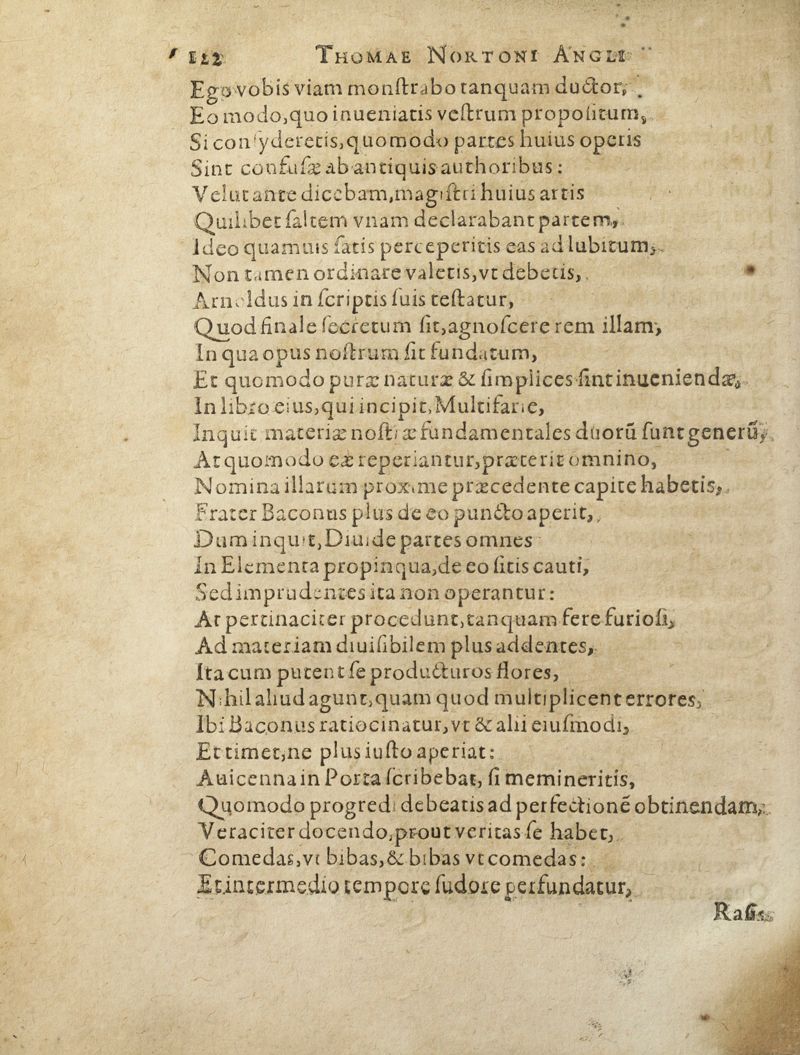 112 THOMAE NORTONI ANGLI
Ego vobis viam monſtrabo tanquam ductor,
Eo modo,quo inueniatis veſtrum propoſitum,
Si conſyderetis,quomodo partes huius operis
Sint confuſæ ab antiquis authoribus:
Velut ante dicebam,magiſtri huius artis
Quilibet ſaltem vnam declarabant partem,
Ideo quamuis ſatis perceperitis eas ad lubitum,
Non tamen ordinare valetis,vt debetis,
Arnoldus in ſcriptis ſuis teſtatur,
Quod finale ſecretum ſit,agnoſcere rem illam,
In qua opus noſtrum ſit fundatum,
Et quomodo puræ naturæ & ſimplices ſint inueniendæ,
In libro eius,qui incipit,Multifarie,
Inquit materiæ noſtræ fundamentales duorū ſunt generū,
At quomodo eæ reperiantur,præterit omnino,
Nomina illarum proxime præcedente capite habetis,
Frater Baconus plus de eo puncto aperit,
Dum inquit,Diuide partes omnes
In Elementa propinqua,de eo ſitis cauti,
Sed imprudentes ita non operantur:
At pertinaciter procedunt,tanquam fere furioſi,
Ad materiam diuiſibilem plus addentes,
Ita cum putent ſe producturos flores,
Nihil aliud agunt,quam quod multiplicent errores,
Ibi Baconus ratiocinatur,vt & alii eiuſmodi,
Et timet,ne plus iuſto aperiat:
Auicenna in Porta ſcribebat, ſi memineritis,
Quomodo progredi debeatis ad perfectionē obtinendam,
Veraciter docendo,prout veritas ſe habet,
Comedas,vt bibas,& bibas vt comedas:
Et intermedio tempore ſudore perfundatur,
Raſis